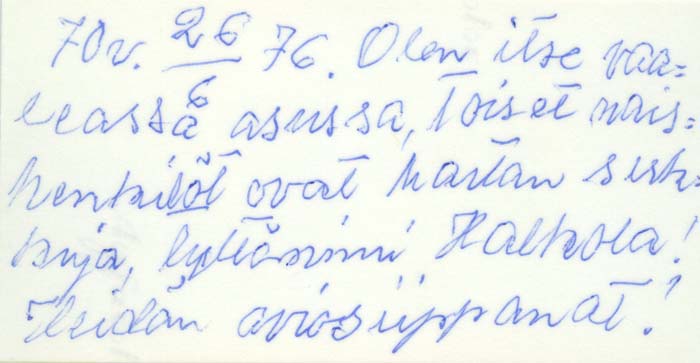 70v. 26/6 76. Olen itse vaa=
leassa asussa, toiset nais=
henkilöt ovat Martan serk=
kuja, tyttönimi Halkola!
Heidän aviosiippanat!